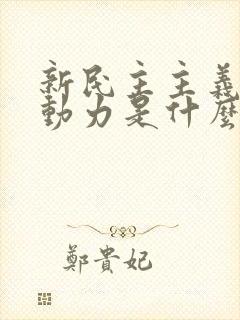 新民主主義
動力是什麼
鄭貴妃